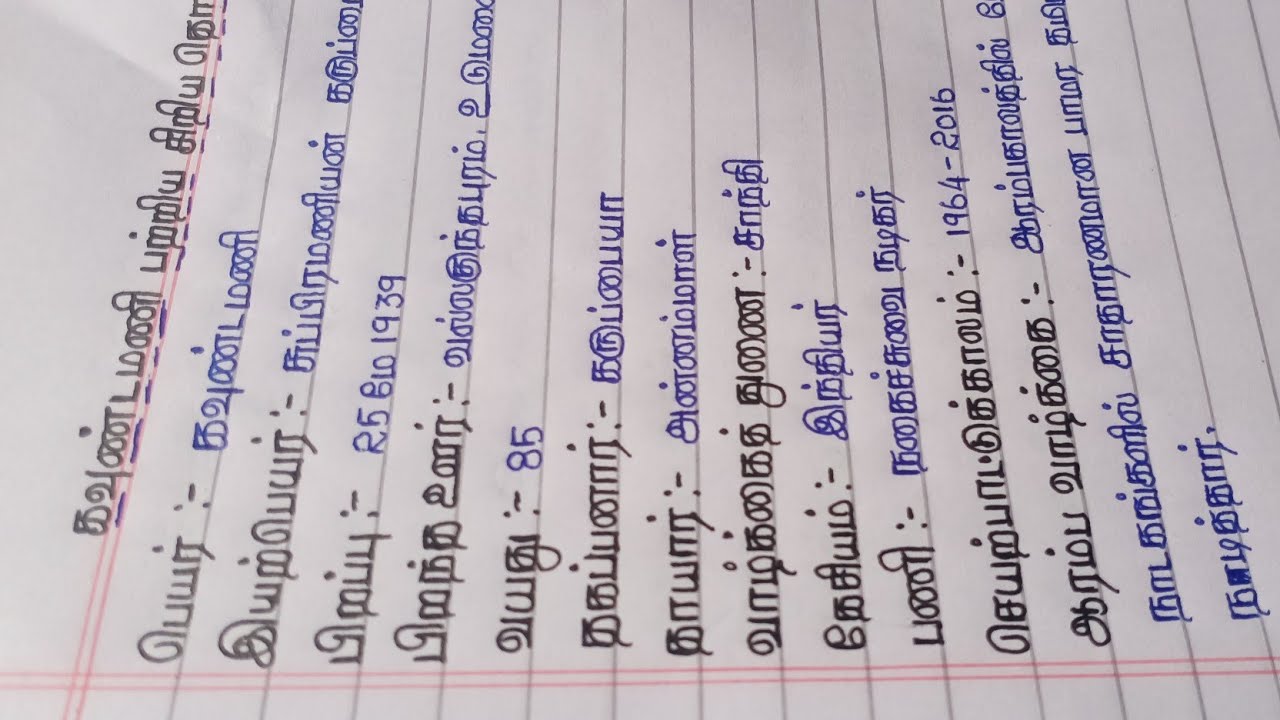 கவுண்டமணி பற்றிய சிறிய தொ
பெயர் :- கவுண்டமணி
இயற்பெயர் :- சுப்பிரமணியன் கருப்பை
பிறப்பு :- 25 மே 1939
பிறந்த ஊர் :- வல்லகுந்தபுரம், உடுமலை
வயது :- 85
தகப்பனார் :- கருப்பையா
தாயார் :- அன்னம்மாள்
வாழ்க்கைத் துணை :- சாந்தி
தேசியம் :- இந்தியர்
பணி :- நகைச்சுவை நடிகர்
செயற்பாட்டுக்காலம் :- 1964-2016
ஆரம்ப வாழ்க்கை :- ஆரம்பகாலத்தில்
நாடகங்களில் சாதாரணமான பாமர
நடித்தார்.